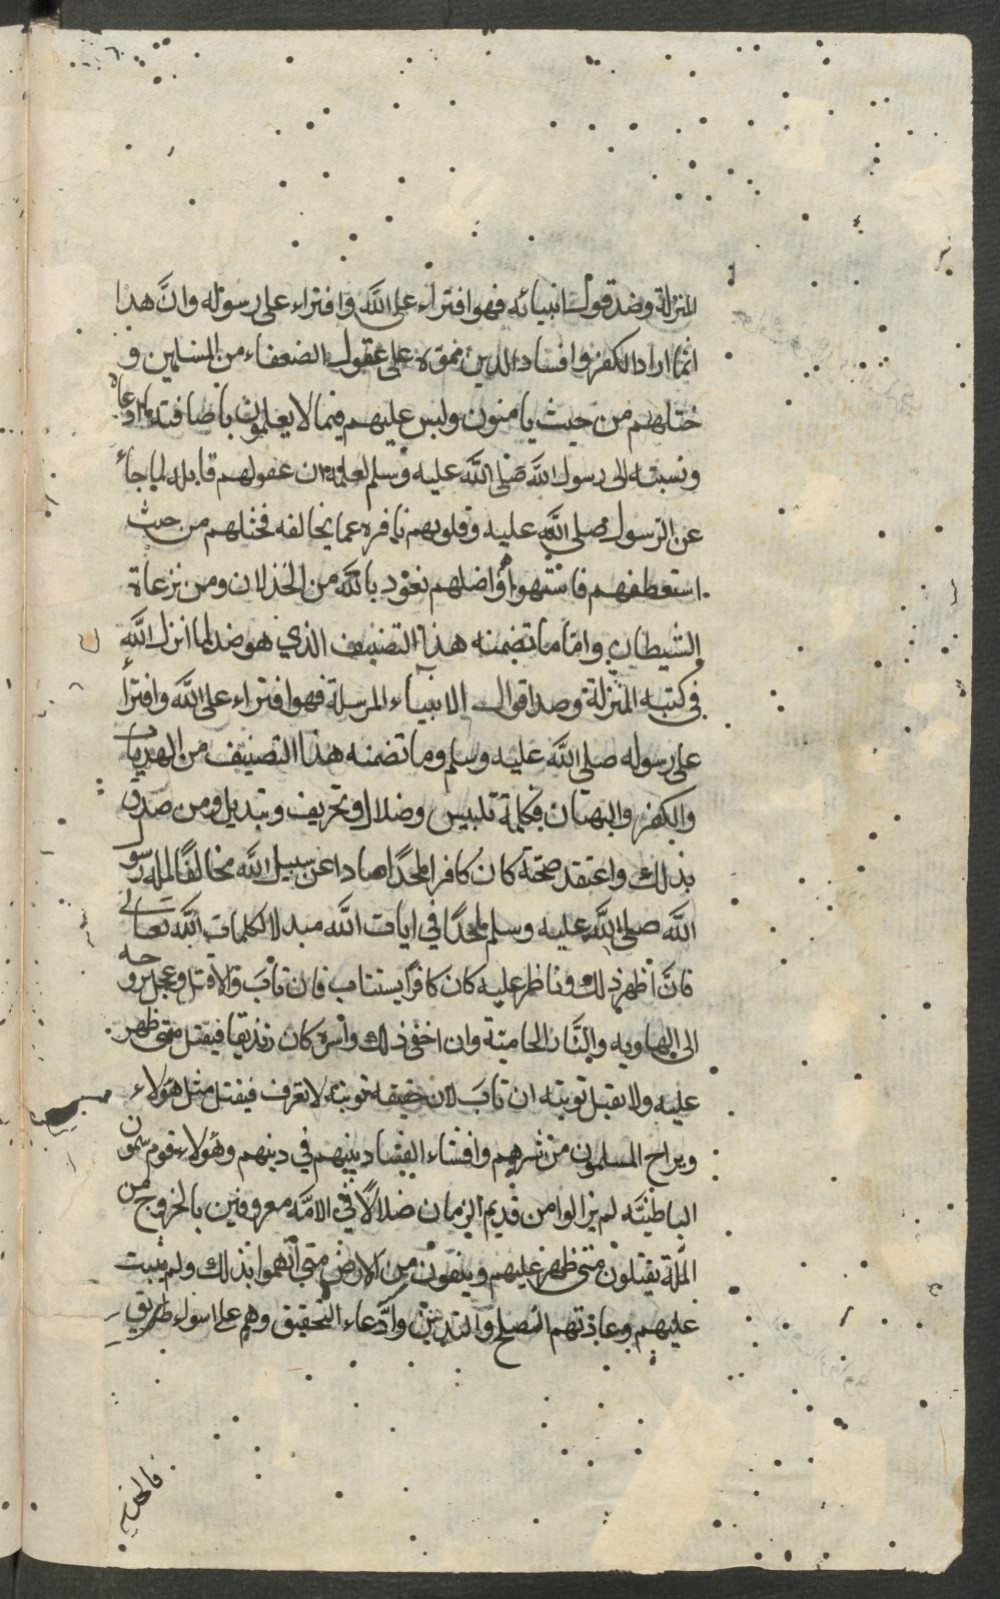 المنزلة وضد قول انبيائه فهو افتراء على الله وافتراء على رسوله وان هذا
انما اراد الكفر وافساد الدين فموه على عقول الضعفاء من المسلمين و
ختلهم من حيث يامنون ولبس عليهم فيما لا يعلمون باضافته ما ادعاه
ونسبته الى رسول الله صلى الله عليه وسلم لعلمه ان عقولهم قابله لما جاء
عن الرسول صلى الله عليه وقلوبهم نافره عما يخالفه فختلهم من حيث
استعطفهم فاستهواهم واضلهم نعوذ بالله من الخذلان ومن نزغاة
الشيطان واما ما تضمنه هذا التصنيف الذي هو ضد لما انزل الله
في كتبه المنزلة وضد اقوال الانبياء المرسلة فهو افتراء على الله وافتراء
على رسوله صلى الله عليه وسلم وما تضمنه هذا التصنيف من الهذيان
والكفر والبهتان فكله تلبيس وضلال وتحريف وتبديل ومن صدق
بذلك واعتقد صحته كان كافرا ملحدا صادا عن سبيل الله مخالفا لملة رسول
الله صلى الله عليه وسلم ملحدا في ايات الله مبدلا لكلمات الله تعالى
فان اظهر ذلك وناظر عليه كان كافرا يستتاب فان تاب والا قتل وعجل بروحه
الى الهاويه والنار الحامية وان اخفى ذلك واسره كان زنديقا فيقتل متى ظهر
عليه ولا تقبل توبته ان تاب لان حقيقه توبته لا تعرف فيقتل مثل هؤلاء
ويراح المسلمون من شرهم وافشاء الفساد بينهم في دينهم وهؤلاء قوم يسمون
الباطنيه لم يزالوا من قديم الزمان ضلالا في الامه معروفين بالخروج من
الملة يقتلون متى ظهر عليهم وينفون من الارض متى اتهموا بذلك ولم يثبت
عليهم وعادتهم التصلح والتدين وادعاء التحقيق وهم على اسواء طريق
فالحذر